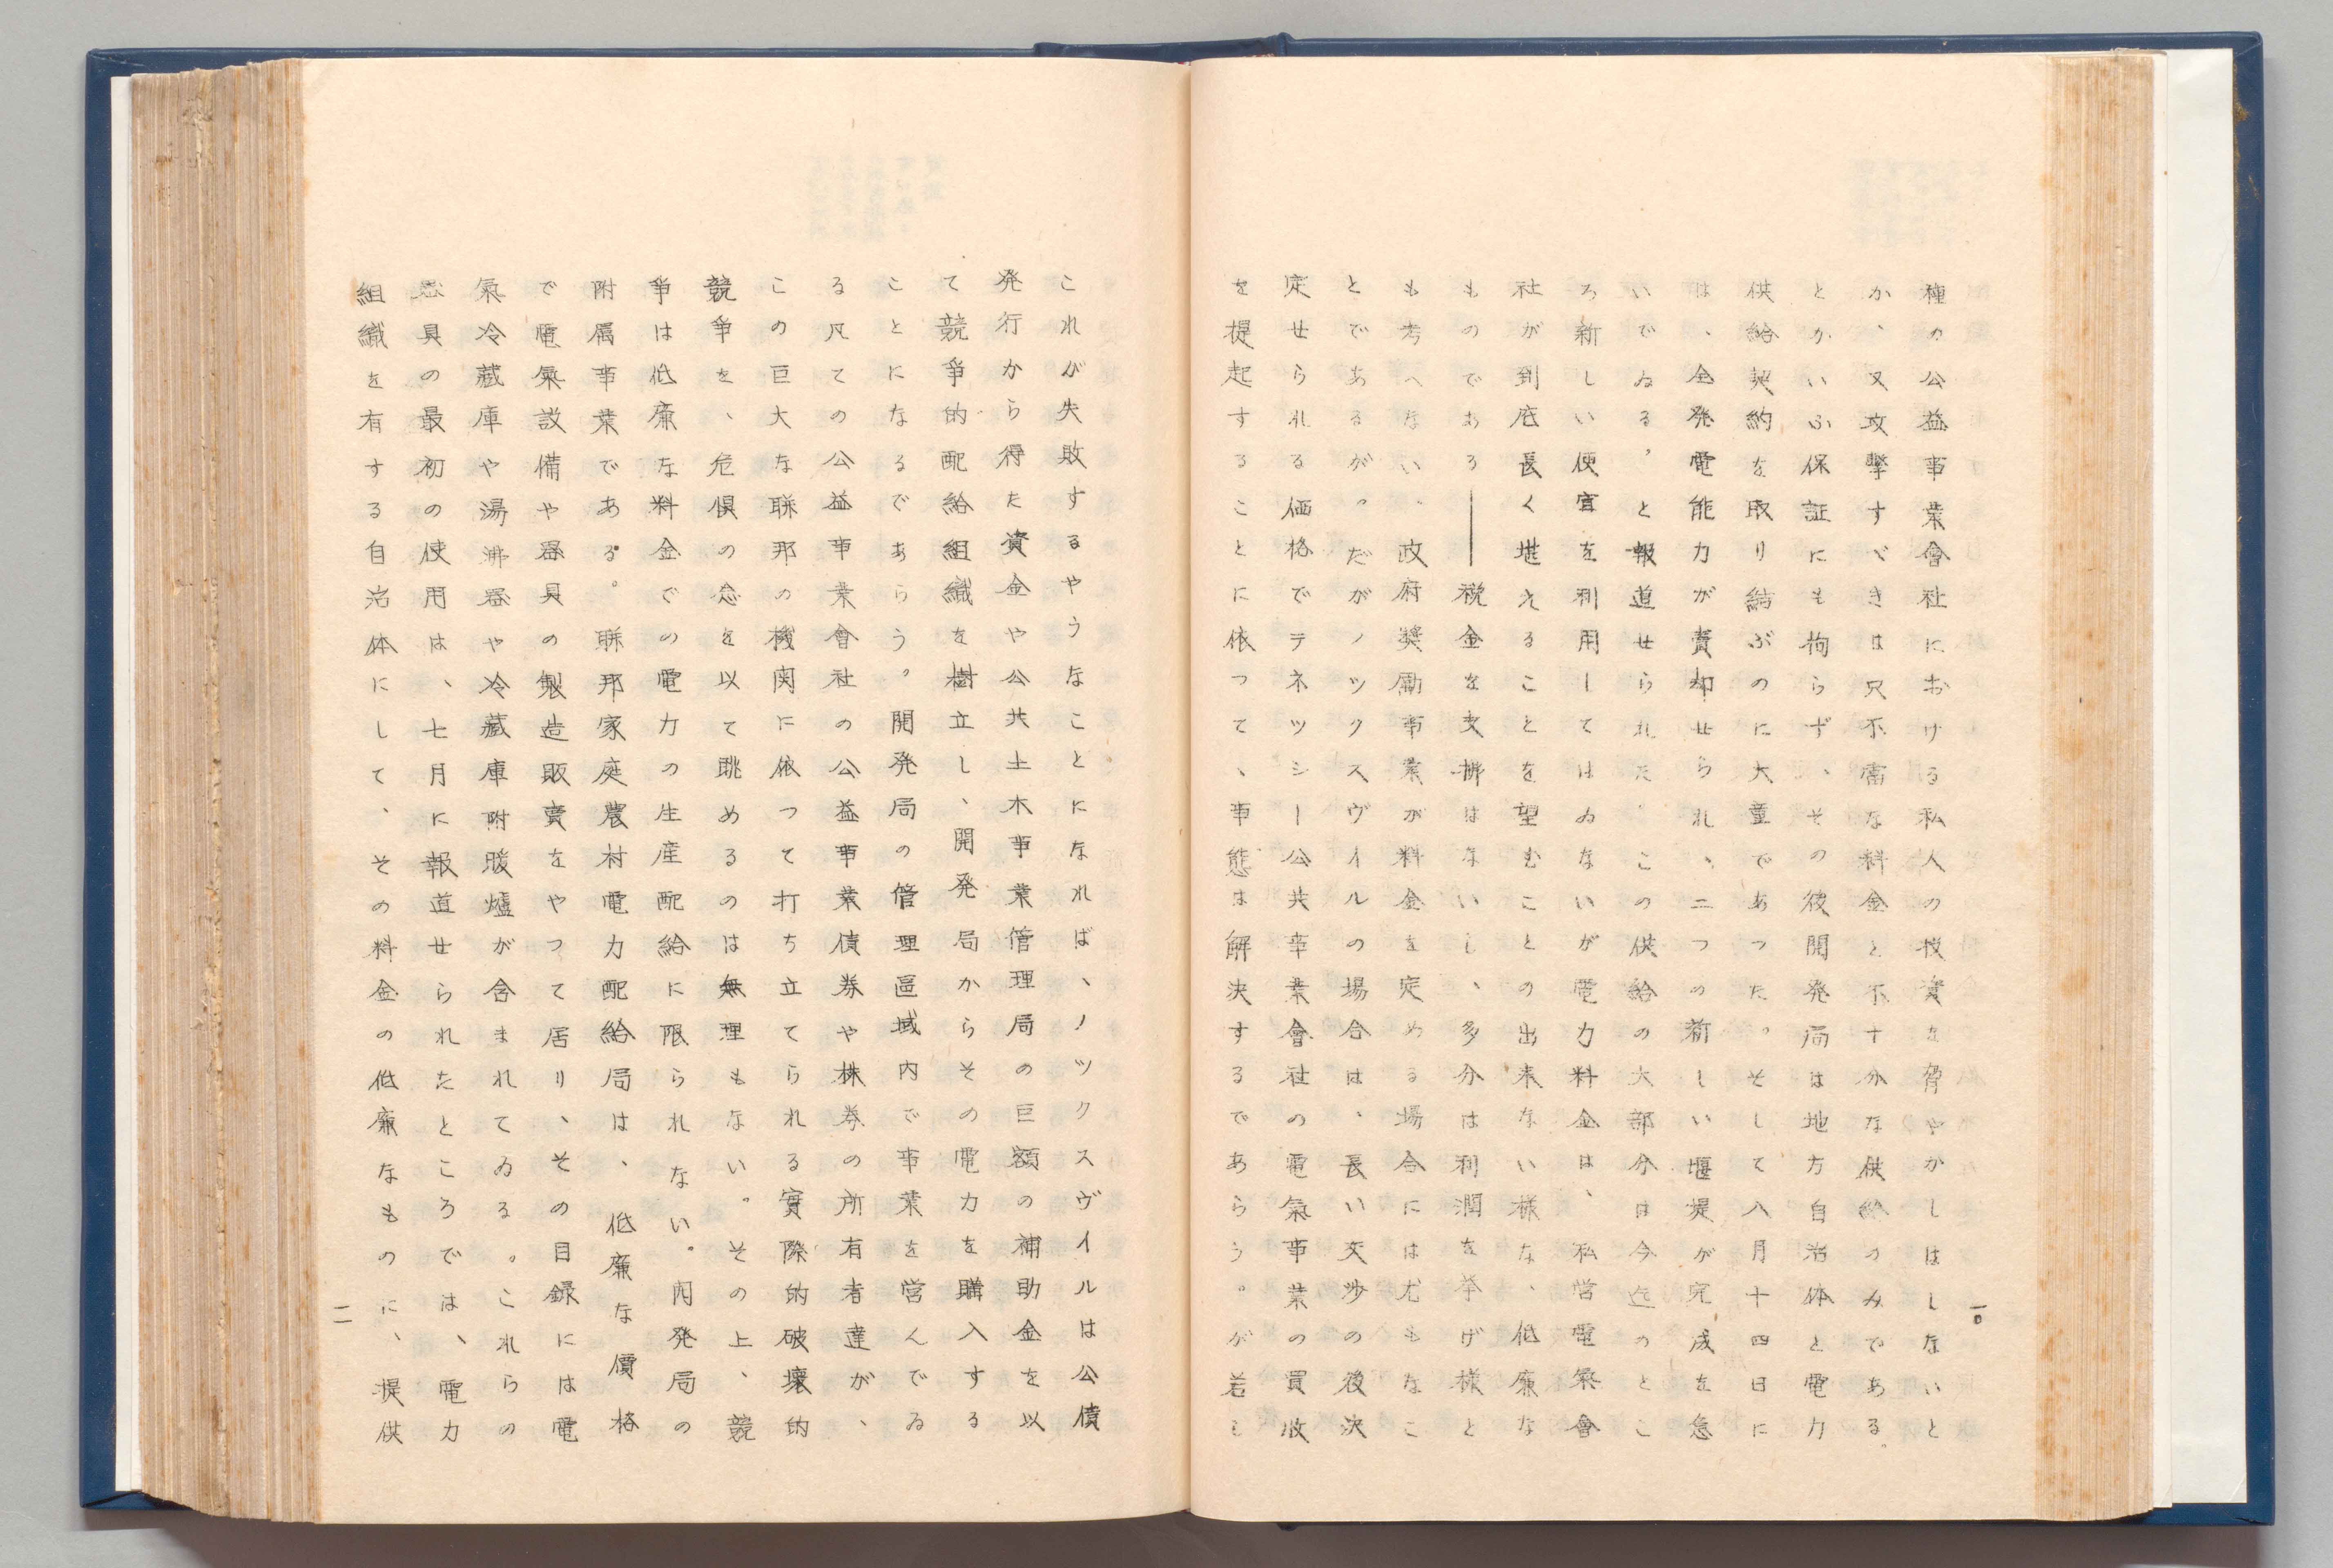 種の公益事業會社における私人の投資を脅やかしはしないと
か、又攻撃すべきは只不當な料金と不十分な供給のみである。
とかいふ保証にも拘らず、その後開発局は地方自治体と電力
供給契約を取り結ぶのに大童であつた。そして八月十四日に
は、全発電能力が賣却せられ、二つの新しい堰堤が完成を急
いでゐる、と報道せられた。この供給の大部分は今迄のとこ
ろ新しい便宜を利用してはゐないが電力料金は、私営電氣會
社が到底長く堪えることを望むことの出来ない様な、低廉な
ものである——税金を支拂はないし、多分は利潤を挙げ様と
も考へない、政府奨勵事業が料金を定める場合には尤もなこ
とであるが。だがノックスヴイルの場合は、長い交渉の後決
定せられる価格でテネツシー公共事業會社の電氣事業の買收
を提起することに依つて、事態は解決するであらう。が若し
一〇
これが失敗するやうなことになれば、ノックスヴイルは公債
発行から得た資金や公共土木事業管理局の巨額の補助金を以
て競爭的配給組織を樹立し、開発局からその電力を購入する
ことになるであらう。開発局の管理區域内で事業を営んでゐ
る凡ての公益事業會社の公益事業債券や株券の所有者達が、
この巨大な聯邦の機関に依つて打ち立てられる實際的破壊的
競爭を、危惧の念を以て眺めるのは無理もない。その上、競
爭は低廉な料金での電力の生産配給に限られない。開発局の
附属事業である。聯邦家庭農村電力配給局は、低廉な價格
で電氣設備や器具の製造販賣をやつて居り、その目録には電
氣冷蔵庫や湯沸器や冷蔵庫附暖爐が含まれてゐる。これらの
器具の最初の使用は、七月に報道せられたところでは、電力
組織を有する自治体にして、その料金の低廉なものに、提供
一一